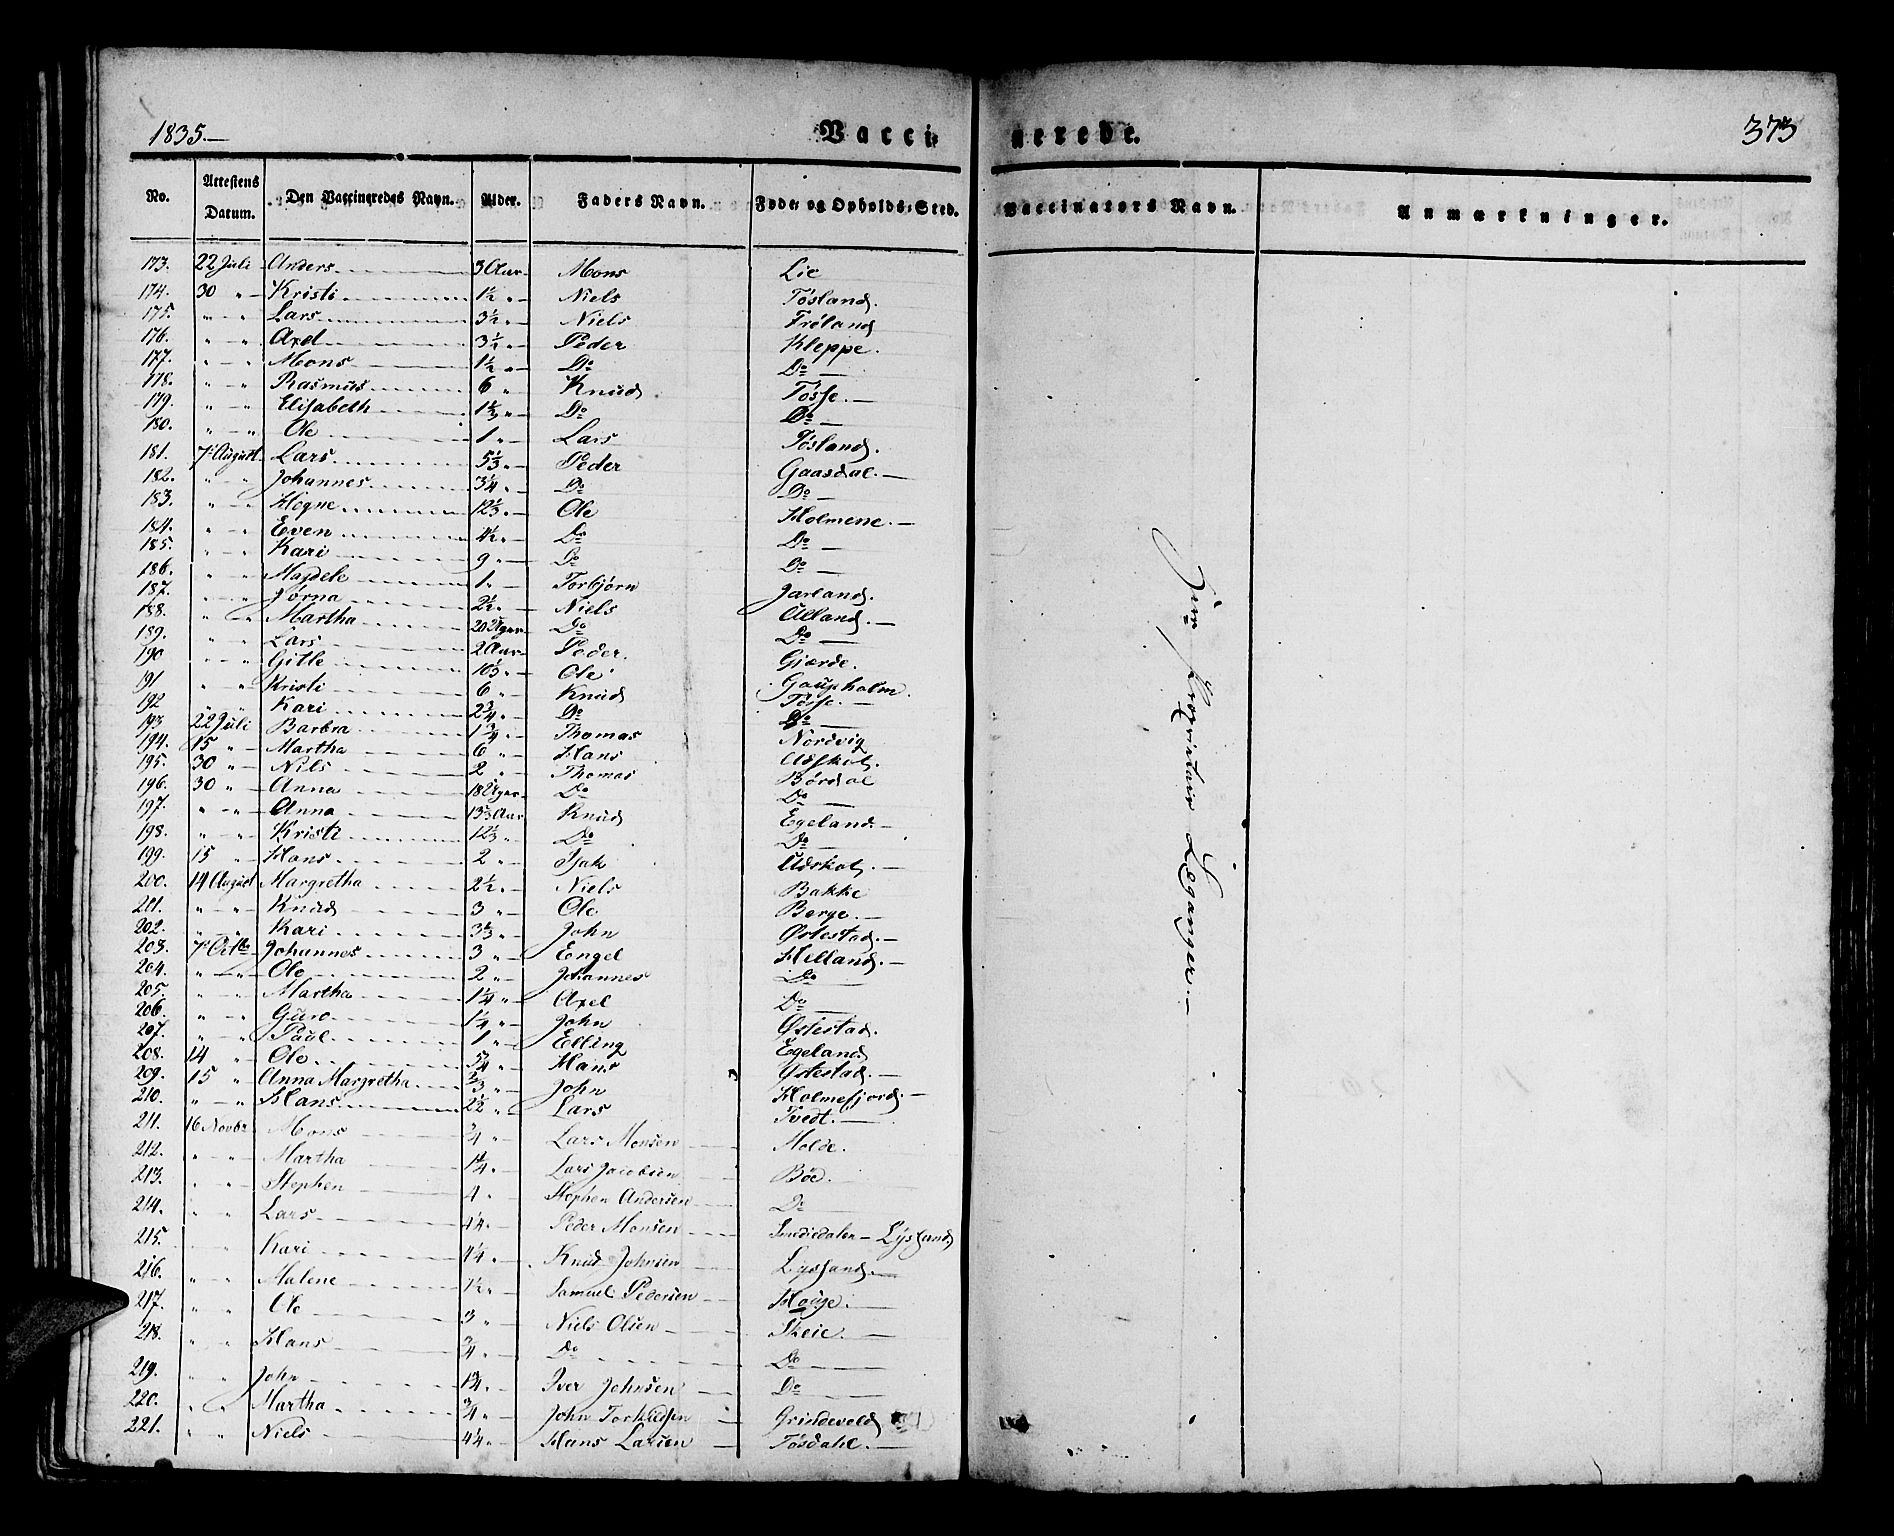 1835.— Vacci- nerede. 373
No. Attestens Datum. Den Vaccineredes Navn. Alder. Faders Navn. Føde- og Opholds-Sted. Vaccinators Navn. Anmærkninger.
173. 22 Juli Anders 3 Aar Mons Lie
174. 30 " Kristi 1½ " Niels Tøsland.
175. " " Lars 3½ " Niels Frøland
176. " " Axel 3½ " Peder Kleppe.
177. " " Mons 1½ " Do Do —
178. " " Rasmus 6 " Knud Tøsse. —
179. " " Elisabeth 1½ " Do Do —
180. " " Ole 1 " Lars Tøsland.
181. 7 August Lars 5⅓ " Peder Gaasdal. —
182. " " Johannes 3¼ " Do Do —
183. " " Hogne 12⅓ " Ole Holmene. —
184. " " Even 4½ " Do Do —
185. " " Kari 9 " Do Do —
186. " " Magdele 1 " Torbjørn Jarland.
187. " " Jørna 2½ " Niels ALland. —
188. " " Martha 20 Uger Do Do —
189. " " Lars 2 Aar Peder. Gjærde.
190 " " Gitle 10⅓ " Ole Gaupholm.
191 " " Kristi 6 " Knud Tøsse. —
192 " " Kari 2¾ " Do Do —
193 22 Juli Barbra 1¾ " Thomas Nordvig
194. 15 " Martha 6 " Hans Udskot.
195. 30 " Nils 2 " Thomas Børdal
196. 30 " Anna 18 Uger Do Do —
197. " " Anna 13⅔ Aar Knud Egeland. —
198. " " Kristi 12⅓ " Do Do —
199. 15 " Hans 2 " Isak Udskot. —
200. 14 August Margretha 2½ " Niels Bakke
201. " " Knud 3 " Ole Berge. —
202. " " Kari 3⅔ " John Østestad. —
203. 7 Octbr Johannes 3 " Engel Helland. —
204. " " Ole 2 " Johannes Do —
205. " " Martha 1¼ " Axel Do —
206. " " Guro 1¼ " John Østestad.
207. " " Paul 1 " Elling Egeland
208. 14 " Ole ¾ " Hans Ystestad. —
209. 15 " Anna Margretha ⅔ " John Holmefjord. —
210. " " Hans 2½ " Lars Tvedt. —
211. 16 Novbr Mons ¾ " Lars Monsen Molde.
212. " " Martha 1¼ " Lars Jacobsen Bøe.
213. " " Stephen 1 " Stephen Andersen Do —
214. " " Lars 1¼ " Peder Monsen Smediedalen — Lysland
215. " Kari 4¼ " Knud Johnsen Lysland. —
216. " " Malene 1½ " Samuel Pedersen Houge. —
217. " " Ole 3 " Niels Olsen Skeie. —
218. " " Hans ¾ " Do Do —
219. " " John 1¾ " Iver Johnsen Do —
220. " " Martha ¾ " John Torkildsen Grindevold
221. " " Niels 4¼ " Hans Larsen Tøsdahl. —
Proprietair Leganger. —